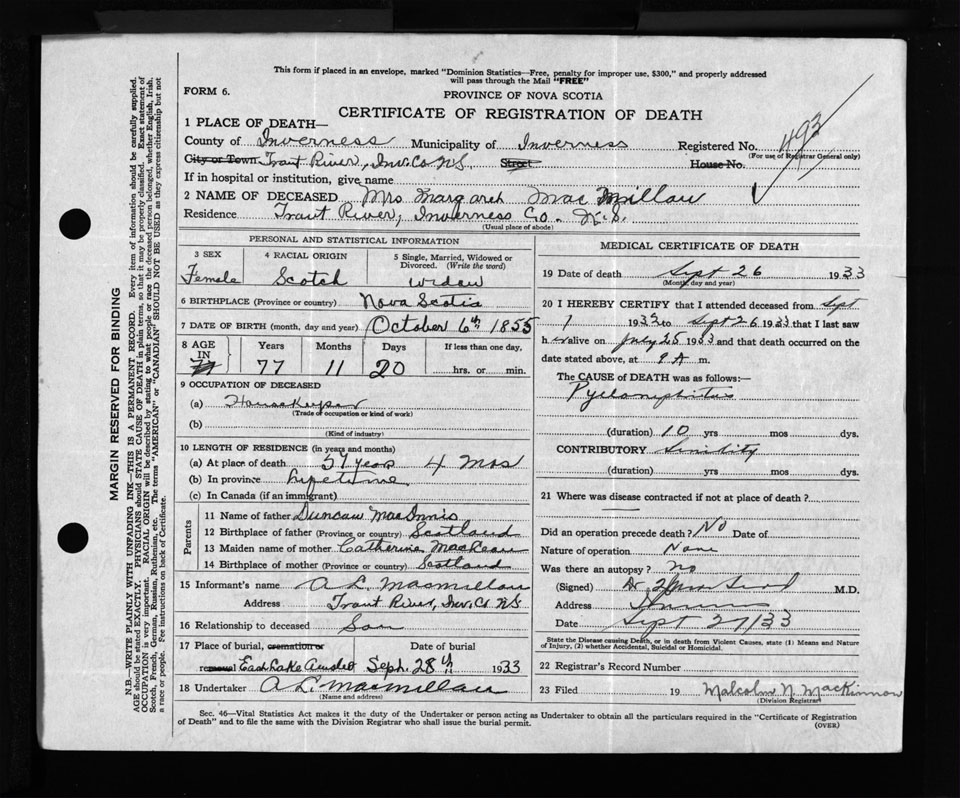 This form if placed in an envelope, marked "Dominion Statistics—Free, penalty for improper use, $300," and properly addressed
will pass through the Mail "FREE"
FORM 6.
PROVINCE OF NOVA SCOTIA
CERTIFICATE OF REGISTRATION OF DEATH
1 PLACE OF DEATH—
County of Inverness Municipality of Inverness Registered No. 493
(For use of Registrar General only)
City or Town Trout River, Inv. Co. N.S. Street House No.
If in hospital or institution, give name
2 NAME OF DECEASED Mrs Margaret MacMillan
Residence Trout River, Inverness Co. N.S.
(Usual place of abode)
PERSONAL AND STATISTICAL INFORMATION
3 SEX 4 RACIAL ORIGIN 5 Single, Married, Widowed or
Divorced. (Write the word)
Female Scotch widow
6 BIRTHPLACE (Province or country) Nova Scotia
7 DATE OF BIRTH (month, day and year) October 6th 1855
8 AGE IN Years Months Days If less than one day,
77 11 20 hrs. or min.
9 OCCUPATION OF DECEASED
(a) Housekeeper
(Trade or occupation or kind of work)
(b)
(Kind of industry)
10 LENGTH OF RESIDENCE (in years and months)
(a) At place of death 57 years 4 Mos
(b) In province lifetime
(c) In Canada (if an immigrant)
Parents
11 Name of father Duncan MacInnis
12 Birthplace of father (Province or country) Scotland
13 Maiden name of mother Catherine MacLean
14 Birthplace of mother (Province or country) Scotland
15 Informant's name A. L. Macmillan
Address Trout River, Inv. Co. N.S.
16 Relationship to deceased Son
17 Place of burial, cremation or Date of burial
removal East Lake Ainslie Seph. 28th 1933
18 Undertaker A. L. Macmillan
(Name and address)
MEDICAL CERTIFICATE OF DEATH
19 Date of death Sept 26 1933
(Month, day and year)
20 I HEREBY CERTIFY that I attended deceased from Sept
1 1932 to Sept 26 1933 that I last saw
h er alive on July 25 1933 and that death occurred on the
date stated above, at 9 A m.
The CAUSE OF DEATH was as follows:—
Pyelonephritis
(duration) 10 yrs mos dys.
CONTRIBUTORY Senility
(duration) yrs mos dys.
21 Where was disease contracted if not at place of death?
Did an operation precede death? No Date of
Nature of operation None
Was there an autopsy? No
(Signed) Dr. M.D.
Address
Date Sept 27/33
State the Disease causing Death, or in death from Violent Causes, state (1) Means and Nature
of Injury, (2) whether Accidental, Suicidal or Homicidal.
22 Registrar's Record Number
23 Filed 19 Malcolm N. MacKinnon
(Division Registrar)
Sec. 46—Vital Statistics Act makes it the duty of the Undertaker or person acting as Undertaker to obtain all the particulars required in the "Certificate of Registration
of Death" and to file the same with the Division Registrar who shall issue the burial permit.
(OVER)
MARGIN RESERVED FOR BINDING
N.B.—WRITE PLAINLY WITH UNFADING INK—THIS IS A PERMANENT RECORD. Every item of information should be carefully supplied.
AGE should be stated EXACTLY. PHYSICIANS should STATE CAUSE OF DEATH in plain terms, so that it may be properly classified. Exact statement of
OCCUPATION is very important. RACIAL ORIGIN will be described by stating to what people or race the deceased person belonged, whether English, Irish,
Scotch, French, German, Russian, Ruthenian, etc. The terms "AMERICAN" or "CANADIAN" SHOULD NOT BE USED as they express citizenship but not
a race or people. Fee instructions on back of Certificate.